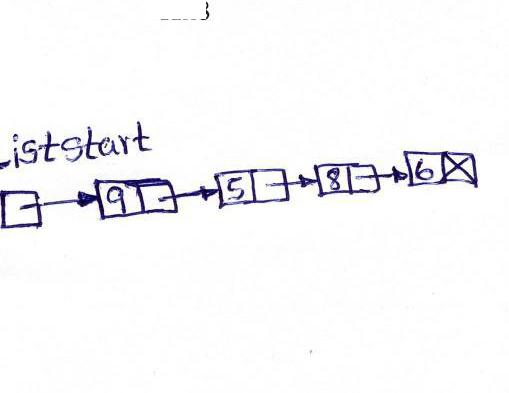 }
Liststart
9 5 8 6